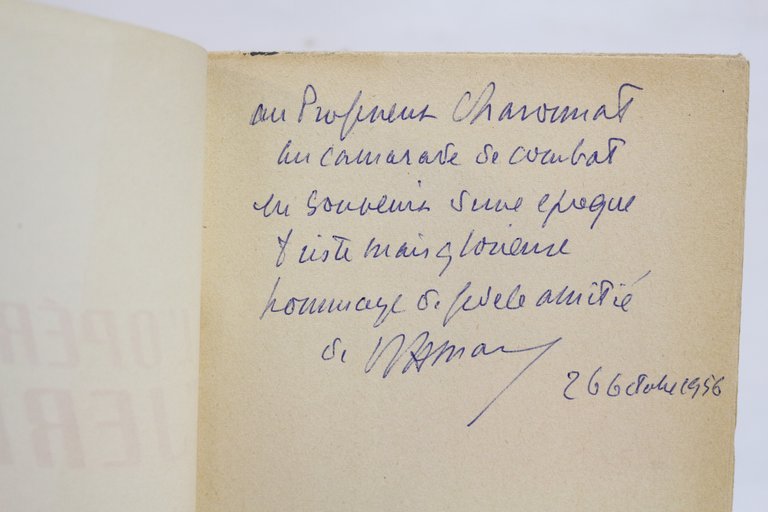 au Professeur Charonnat
au camarade de combat
en souvenir d'une epoque
triste mais glorieuse
hommage de fidele amitié
de
26 Octobre 1956
OPÉR
JERI